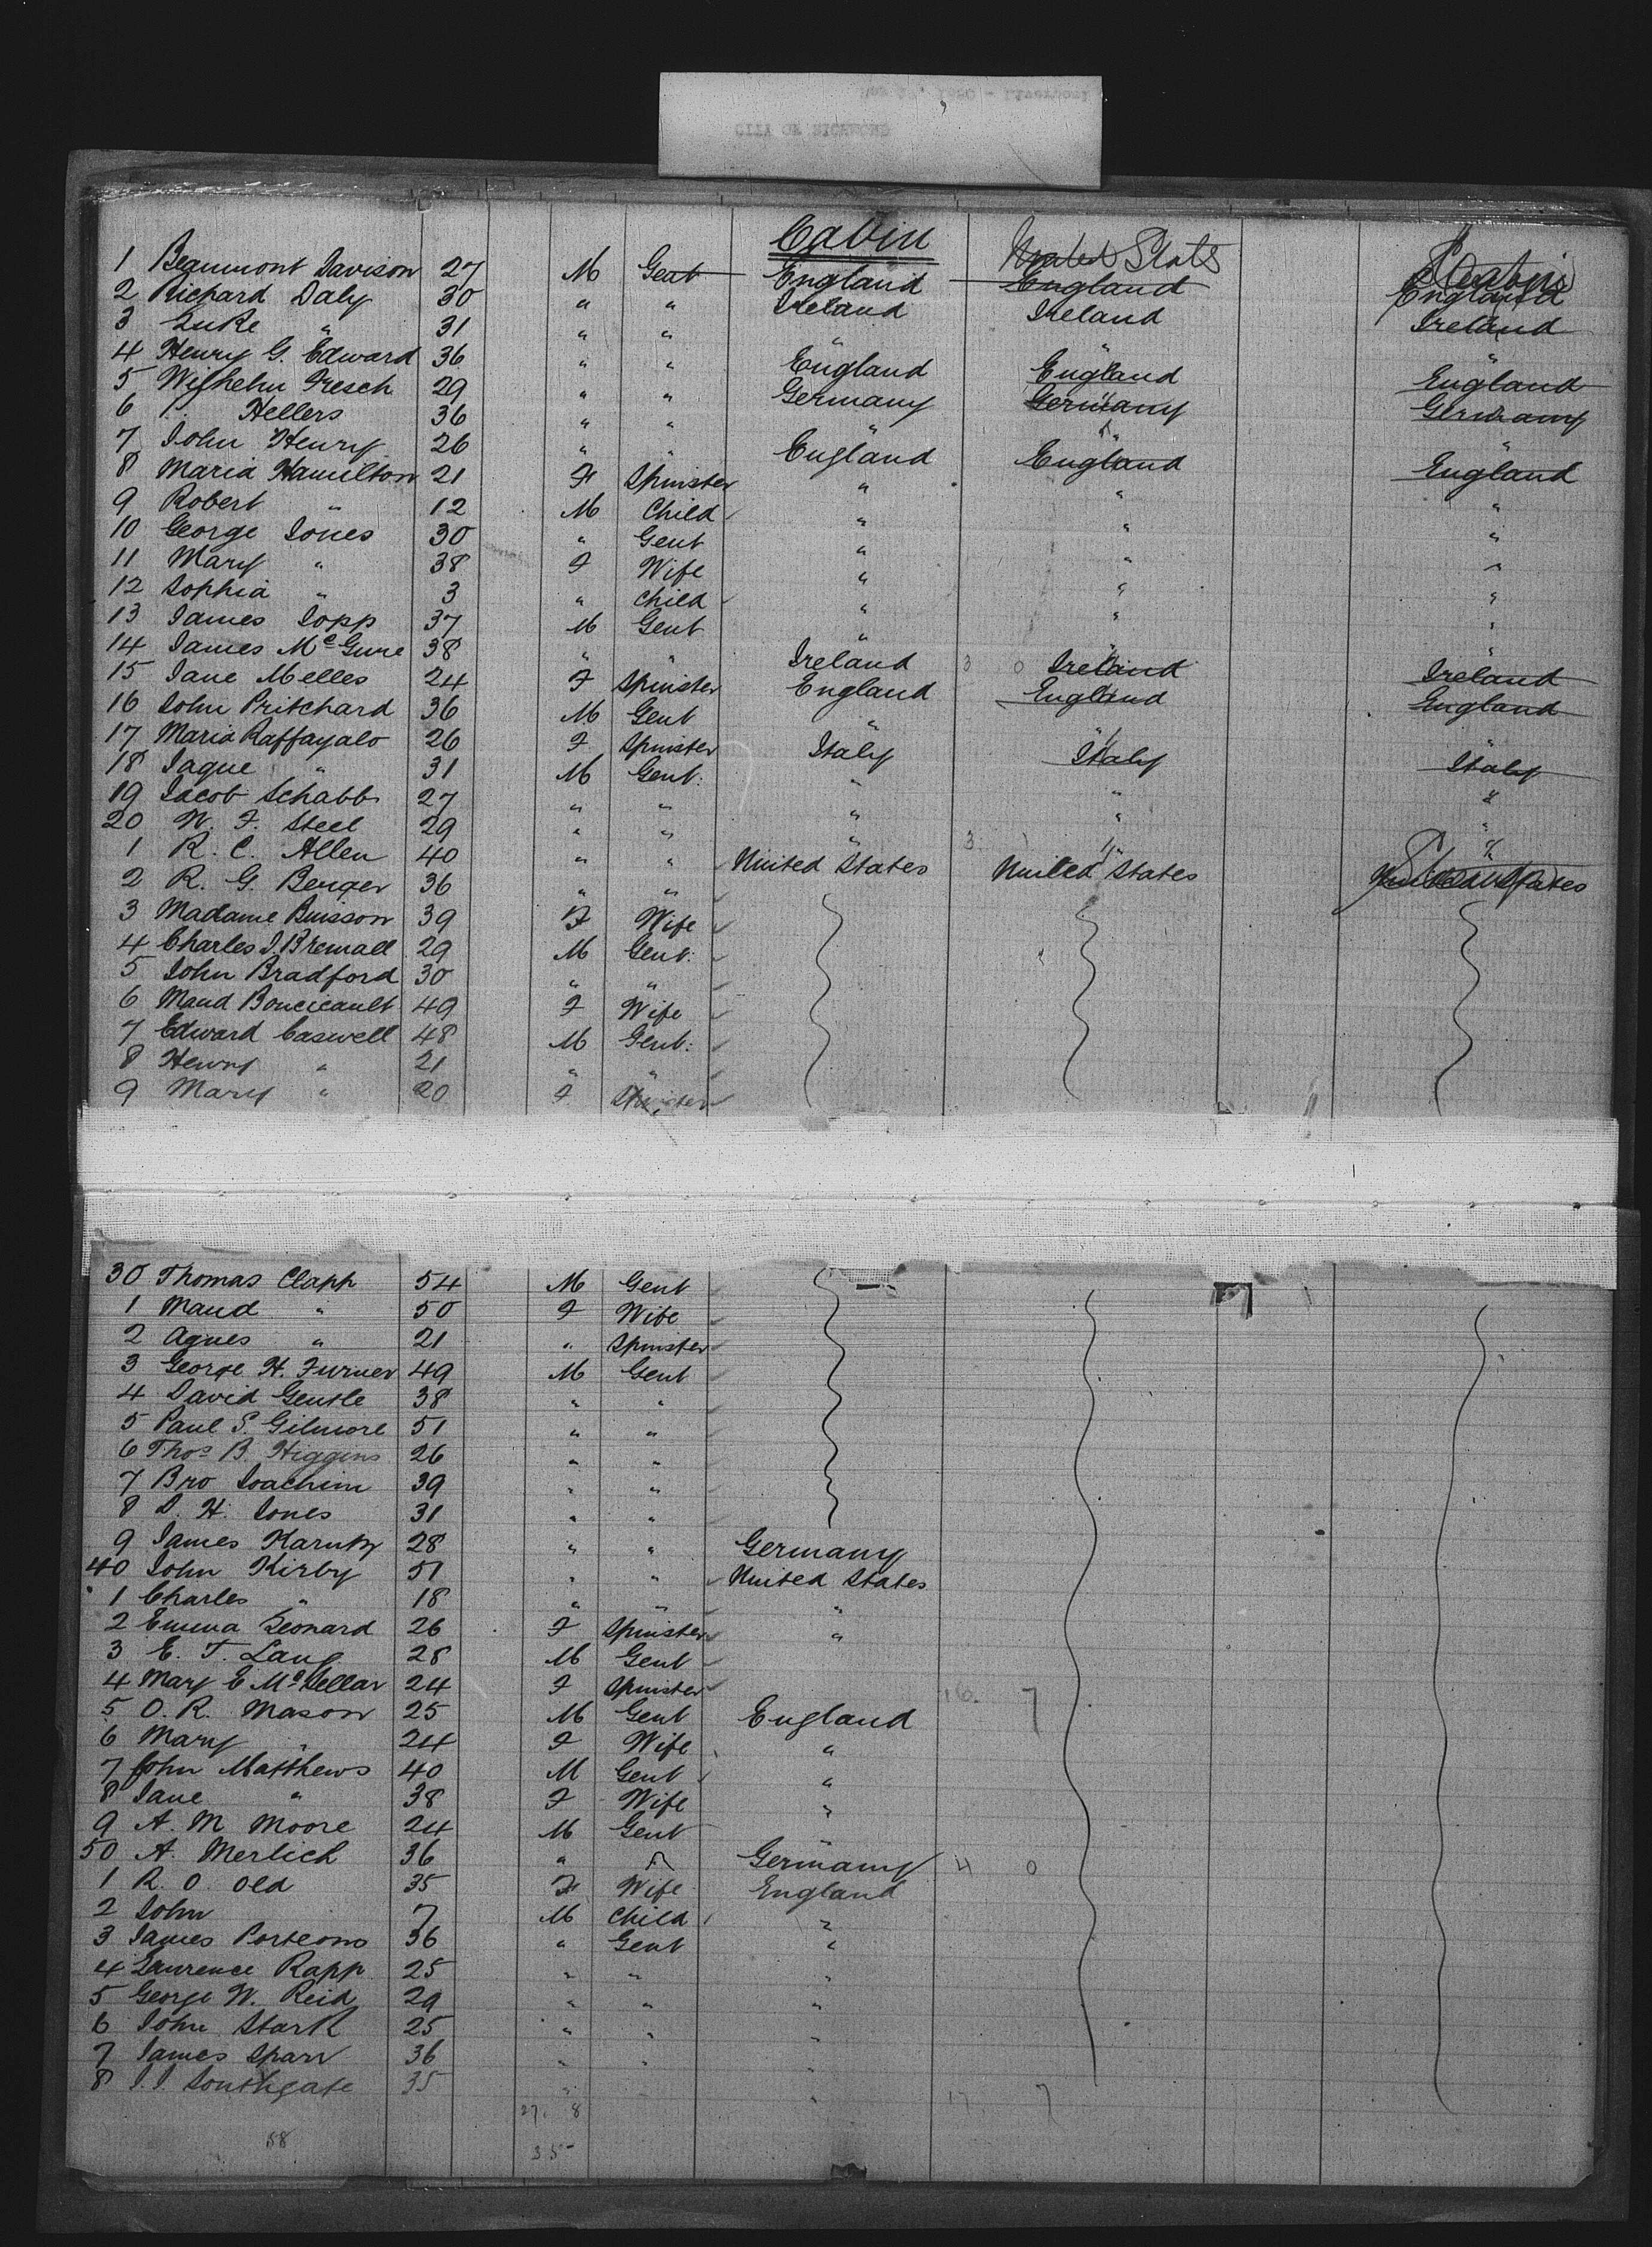 CITY OF RICHMOND
Cabin
United States
1 Beaumont Davison 27 M Gent England England England
2 Richard Daly 30 " " Ireland Ireland Ireland
3 Luke " 31 " " " " "
4 Henry G. Edward 36 " " England England England
5 Wilhelm Fresch 29 " " Germany Germany Germany
6 " Hellers 36 " " " " "
7 John Henry 26 " " England England England
8 Maria Hamilton 21 F Spinster " " "
9 Robert " 12 M Child " " "
10 George Jones 30 " Gent " " "
11 Mary " 38 F Wife " " "
12 Sophia " 3 " Child " " "
13 James Jopp 37 M Gent " " "
14 James McGure 38 " " Ireland 3 0 Ireland Ireland
15 Jane Melles 24 F Spinster England England England
16 John Pritchard 36 M Gent " " "
17 Maria Raffayalo 26 F Spinster Italy Italy Italy
18 Jaque " 31 M Gent. " " "
19 Jacob Schabb 27 " " " " "
20 W. F. Steel 29 " " " " "
1 R. C. Allen 40 " " United States United States United States
2 R. G. Berger 36 " "
3 Madame Buisson 39 F Wife
4 Charles J. Bremall 29 M Gent.
5 John Bradford 30 " "
6 Maud Boucicault 49 F Wife
7 Edward Caswell 48 M Gent.
8 Henry " 21 " "
9 Mary " 20 F Spinster
30 Thomas Clapp 54 M Gent
1 Maud " 50 F Wife
2 Agnes " 21 " Spinster
3 George H. Furner 49 M Gent
4 David Gentle 38 " "
5 Paul S. Gilmore 51 " "
6 Thos B. Higgins 26 " "
7 Bro Joachim 39 " "
8 D. H. Jones 31 " "
9 James 28 " " Germany
40 John Kirby 51 " " United States
1 Charles " 18 " " "
2 Emma Leonard 26 F Spinster "
3 E. T. Lang 28 M Gent
4 Mary E McKellar 24 F Spinster 16. 7
5 O. R. Mason 25 M Gent England
6 Mary " 24 F Wife "
7 John Matthews 40 M Gent "
8 Jane " 38 F Wife "
9 A. M Moore 24 M Gent "
50 A. Merlich 36 " " Germany 4 0
1 R. O. Old 35 F Wife England
2 John 7 M Child "
3 James Porteous 36 " Gent "
4 Laurence Rapp 25 " " "
5 George W. Reid 29 " " "
6 John Stark 25 " " "
7 James Sparr 36 " " "
8 J. J. Southgate 35 " " 17 7
27. 8
58 35